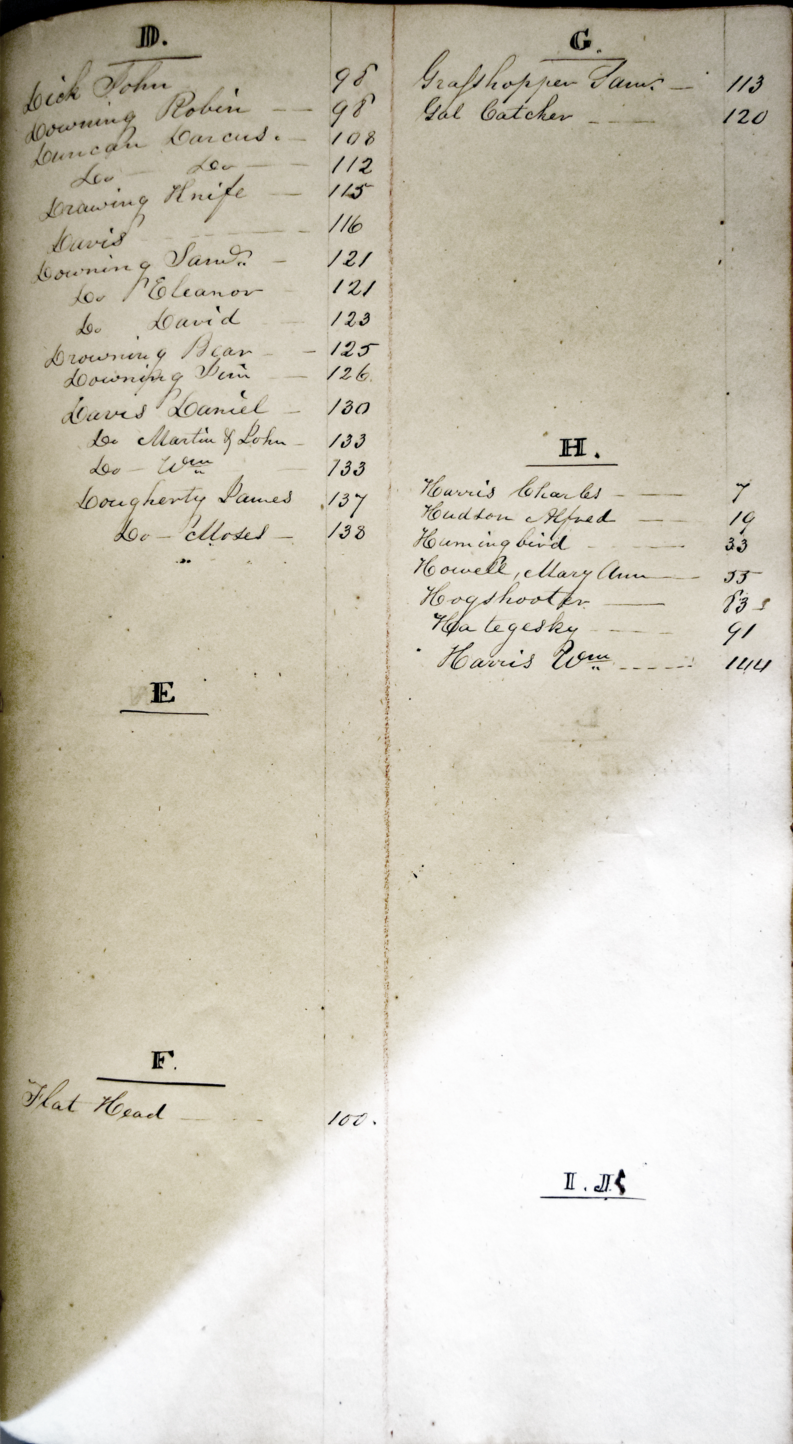 D.
Dick John 98
Downing Robin — 98
Duncan Darcus. — 108
Do — Do — 112
Drawing Knife — 115
Davis — 116
Downing Saml. — 121
Do Eleanor — 121
Do David — 123
Drowning Bear — 125
Downing Jim — 126.
Davis Daniel — 130
Do Martin & John — 133
Do — Wm 133
Dougherty James 137
Do — Moses — 138
E
F.
Flat Head — 100.
G.
Grasshopper Saml. — 113
Gal Catcher — 120
H.
Harris Charles — 7
Hudson Alfred — 19
Humingbird — 33
Howell, Mary Ann — 55
Hogshooter — 83
Hategesky — 91
Harris Wm — 144
I. J